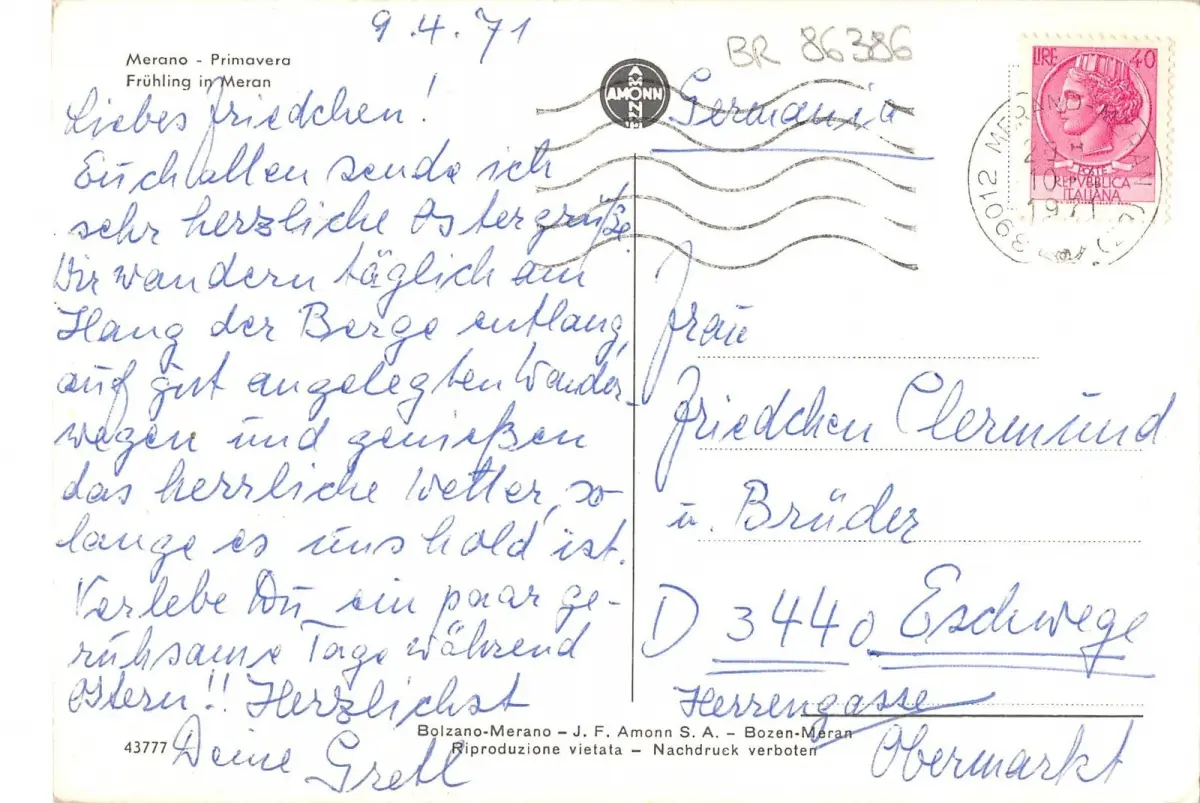 9.4.71
BR 86386
Merano - Primavera
Frühling in Meran
AMONN
AMONN
Germania
LIRE 40
POSTE
REPVBBLICA
ITALIANA
39012 MERANO-MERAN
10
1971
Liebes Friedchen!
Euch allen sende ich
sehr herzliche Ostergrüße.
Wir wandern täglich am
Hang der Berge entlang,
auf gut angelegten Wander-
wegen und genießen
das herrliche Wetter, so-
lange es uns hold ist.
Verlebe Du ein paar ge-
ruhsame Tage während
Ostern!! Herzlichst
Deine Gretl
Frau
Friedchen Clermund
u. Brüder
D 3440 Eschwege
Herrengasse
Obermarkt
43777
Bolzano-Merano – J. F. Amonn S. A. – Bozen-Meran
Riproduzione vietata – Nachdruck verboten